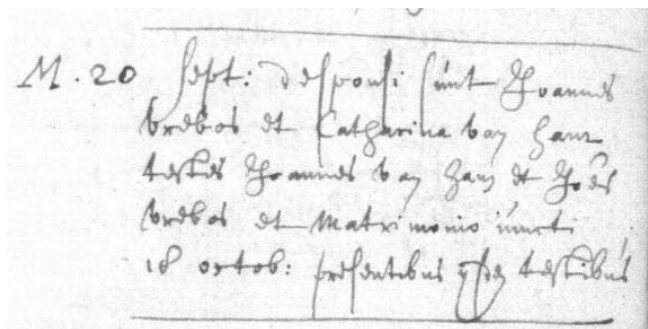 M. 20 Sept: desponsi sunt Joannes
Vrebos et Catharina van Ham
testes Joannes van Ham et Joes
Vrebos et Matrimonio iuncti
18 octob: presentibus ijsdem testibus